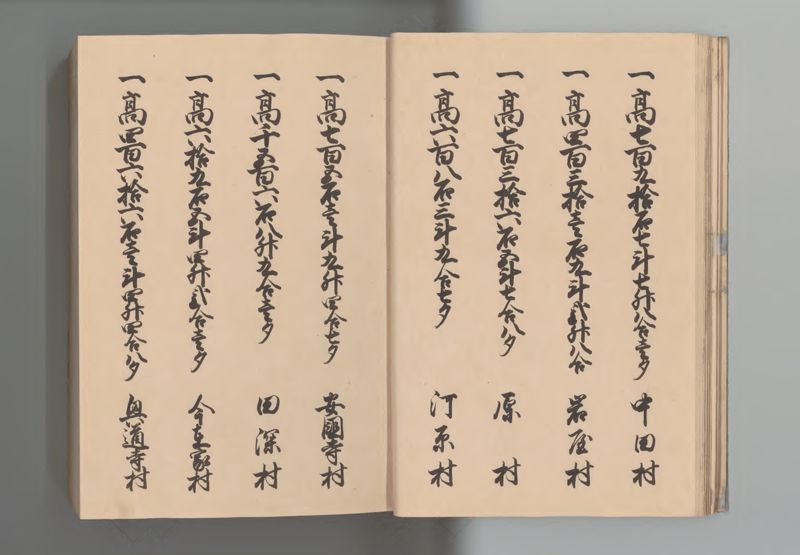 一高七百九拾石七斗七升八合壱夕 中田村
一高四百三拾壱石九斗弐升八合 岩屋村
一高七百三拾六石五斗七合八夕 原村
一高六百八石三斗九合七夕 河原村
一高七百五石壱斗九升四合七夕 安国寺村
一高千五百六石八升九合壱夕 田深村
一高六拾九石五斗四升弐合壱夕 今在家村
一高四百六拾六石壱斗四升四合八夕 興道寺村